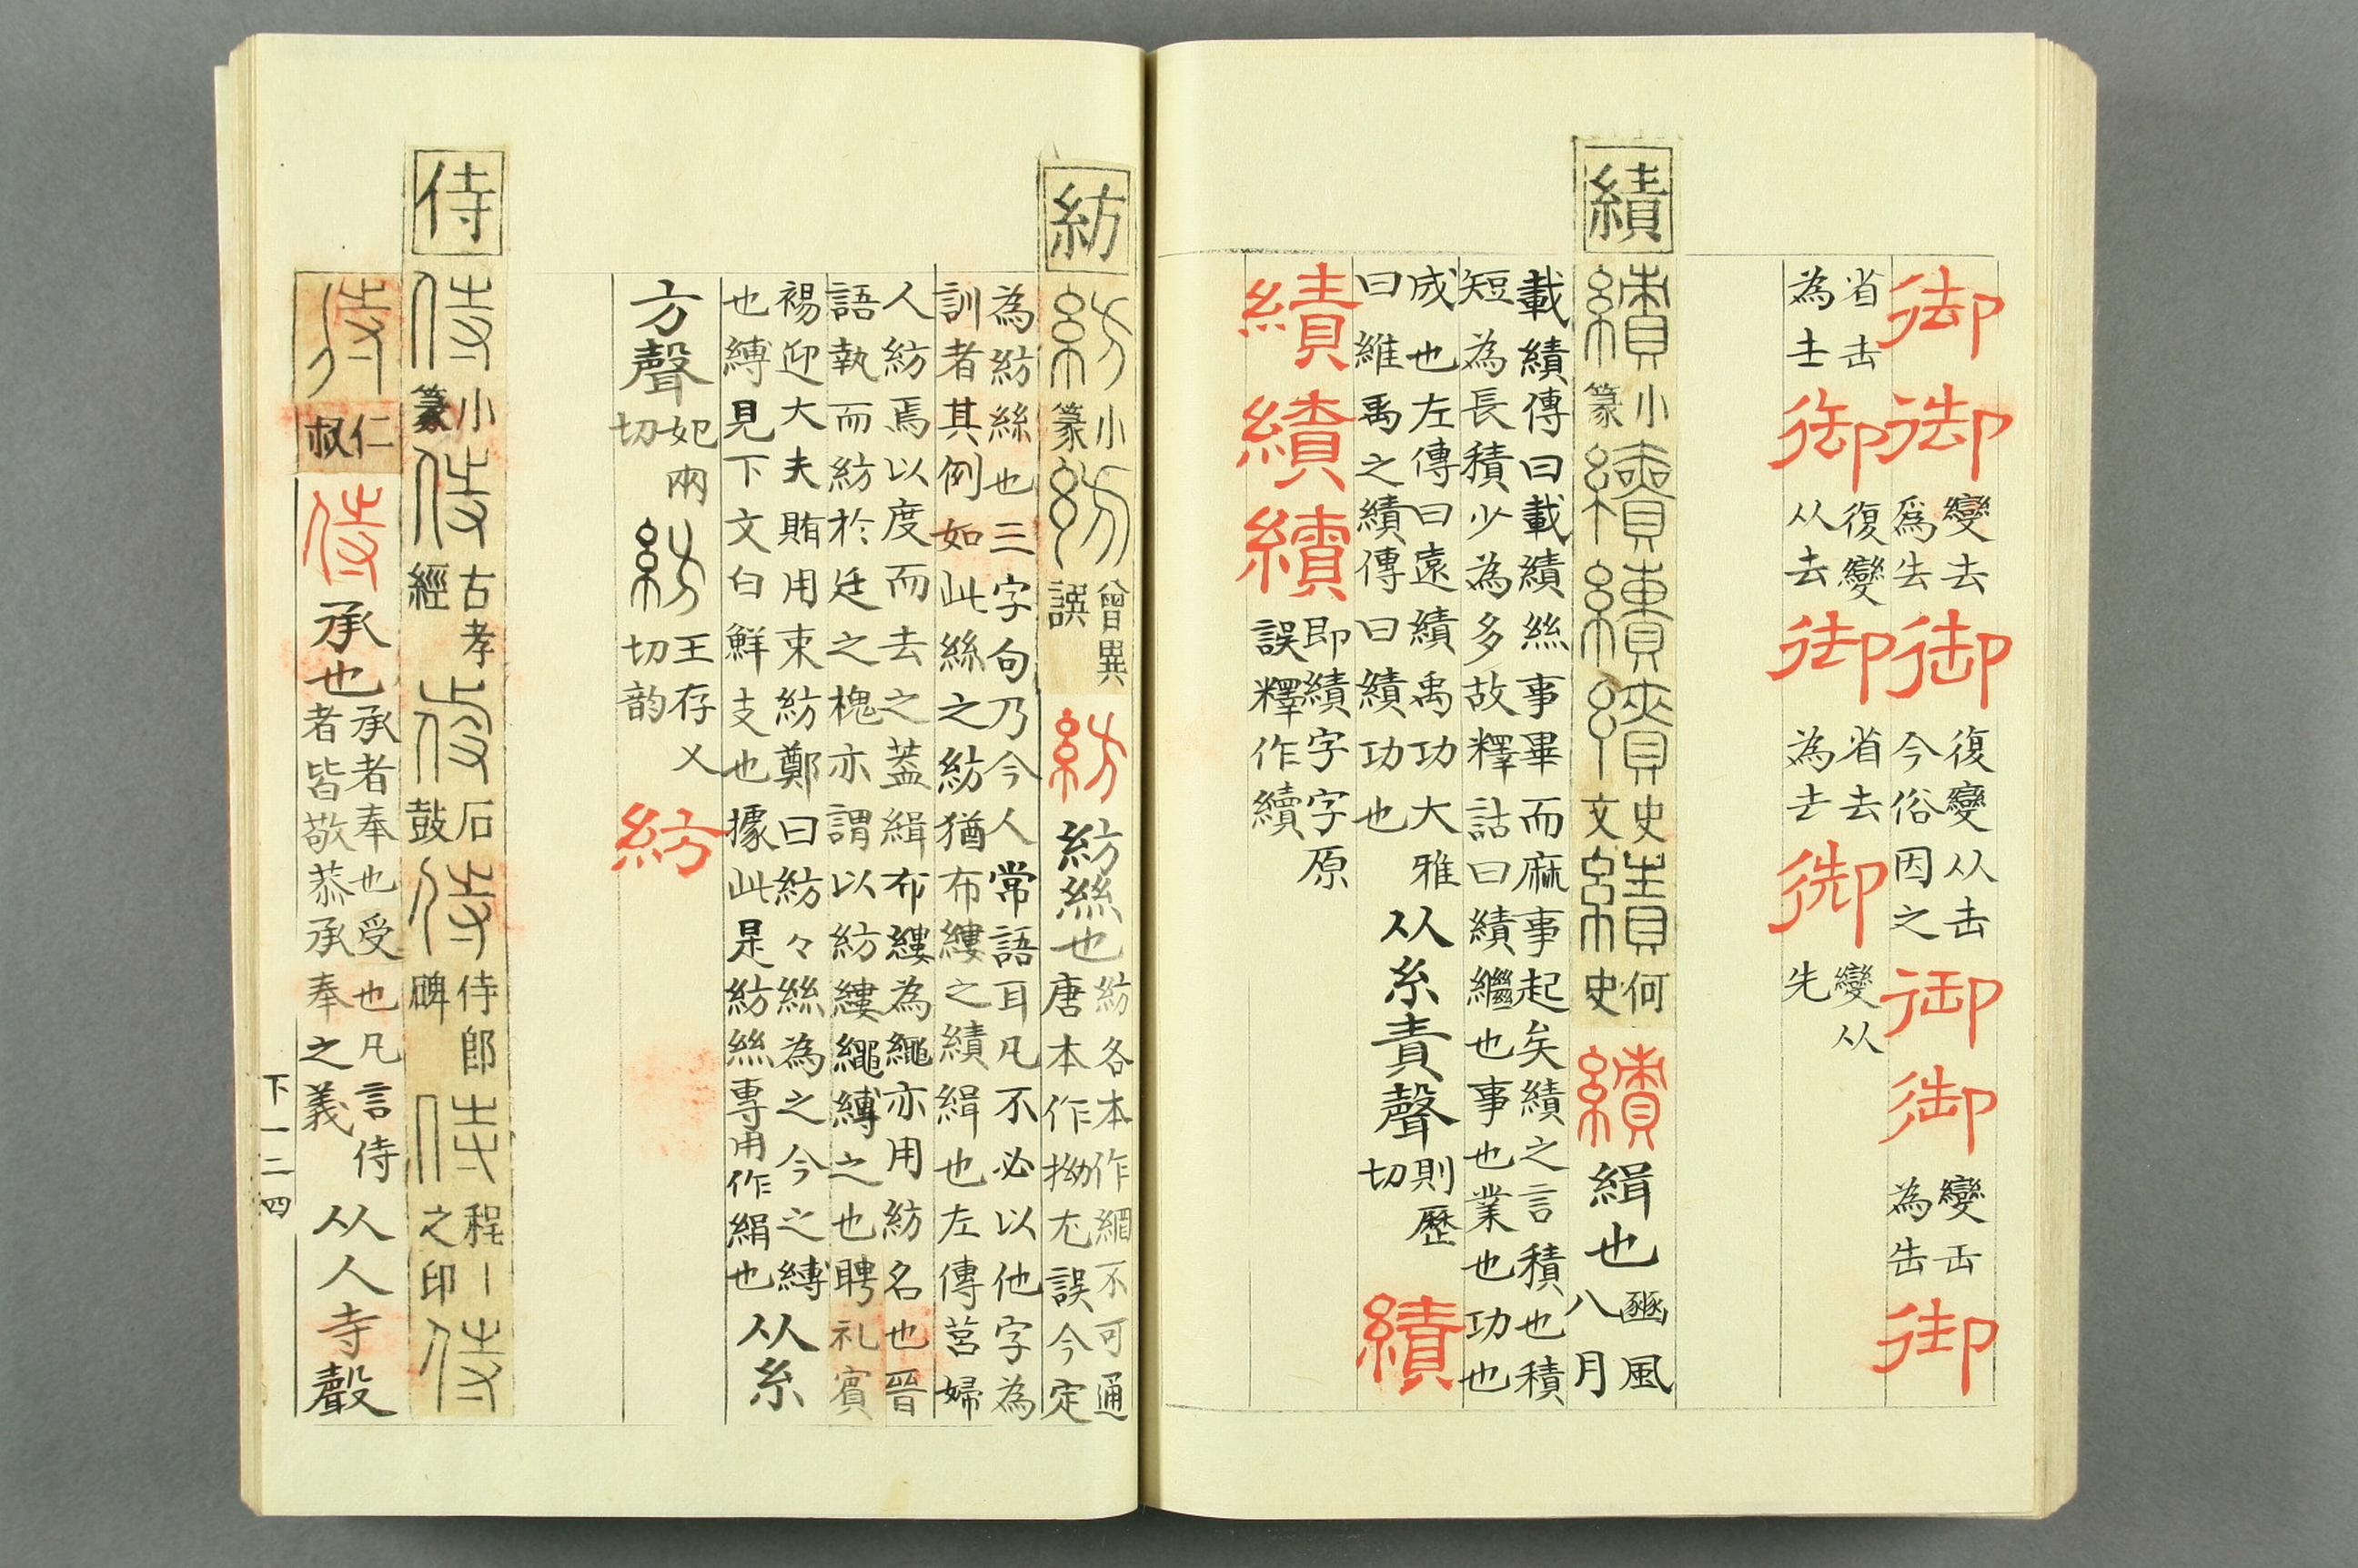 御御變去
為厺
御復變从𠫓
今俗因之
御御變缶
為缶
御
省𠫓
為士
御復變
从去
御省去
為士
御變从
先
績
績小
篆
績績績史
文
績何
史
績緝也豳風
八月
載績傳曰載績絲事畢而麻事起矣績之言積也積
短為長積少為多故釋詁曰績繼也事也業也功也
成也左傳曰遠績禹功大雅
曰維禹之績傳曰績功也
从糸責聲則歷
切
績
績績續即績字字原
誤釋作續
紡
紡小
篆
紡曾異
誤
紡紡絲也紡各本作網不可通
唐本作拗尤誤今定
為紡絲也三字句乃今人常語耳凡不必以他字為
訓者其例如此絲之紡猶布縷之績緝也左傳莒婦
人紡焉以度而去之蓋緝布縷為繩亦用紡名也晉
語執而紡於廷之槐亦謂以紡縷繩縛之也聘礼賓
裼迎大夫賄用束紡鄭曰紡々絲為之今之縛
也縛見下文白鮮支也據此是紡絲專用作絹也
从糸
方聲妃兩
切
紡王存乂
切韵
紡
侍
侍小
篆
侍古孝
經
侍石
鼓
侍侍郎
碑
侍程丨
之印
侍
侍仁
叔
侍承也承者奉也受也凡言侍
者皆敬恭承奉之義
从人寺聲
下一二四